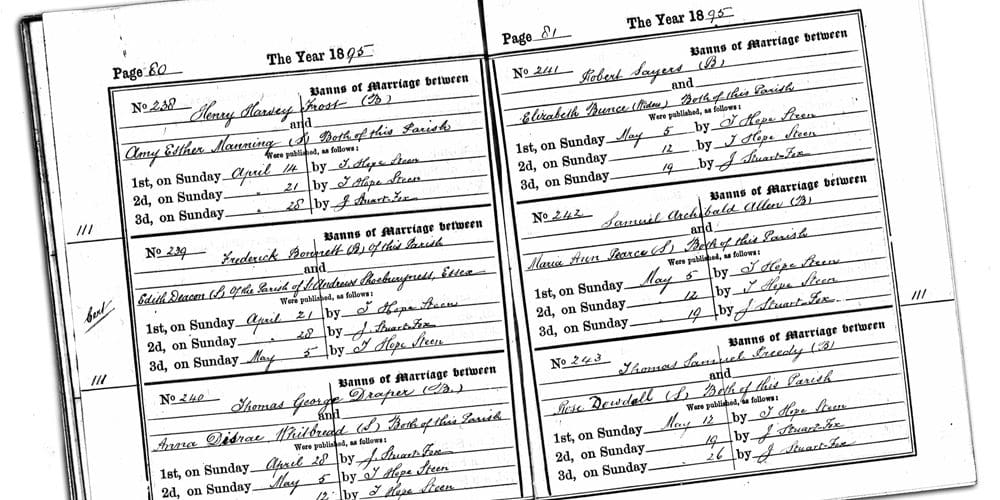 Page 80 The Year 1895
Banns of Marriage between
No 238 Henry Harvey Frost (B)
and
Amy Esther Manning (S) Both of this Parish
Were published, as follows:
1st, on Sunday April 14 by T Hope Steen
2d, on Sunday " 21 by T Hope Steen
3d, on Sunday " 28 by J Stuart-Fox
111
Banns of Marriage between
No 239 Frederick Bonnett (B) of this Parish
and
Edith Deacon (S) Of the Parish of St Andrews Shoeburyness, Essex
Were published, as follows:
Cert
1st, on Sunday April 21 by T Hope Steen
2d, on Sunday " 28 by J Stuart-Fox
3d, on Sunday May 5 by T Hope Steen
111
Banns of Marriage between
No 240 Thomas George Draper (B.)
and
Anna Whitbread (S) Both of this Parish
Were published, as follows:
1st, on Sunday April 28 by J. Stuart-Fox
2d, on Sunday May 5 by T Hope Steen
12 by T Hope Steen
Page 81 The Year 1895
Banns of Marriage between
No 241 Robert Sayers (B)
and
Elizabeth Bunce (Widow) Both of this Parish
Were published, as follows:
1st, on Sunday May 5 by T Hope Steen
2d, on Sunday 12 by T Hope Steen
3d, on Sunday 19 by J Stuart-Fox
Banns of Marriage between
No 242 Samuel Archibald Allen (B)
and
Maria Ann Pearce (S) Both of this Parish
Were published, as follows:
1st, on Sunday May 5 by T Hope Steen
2d, on Sunday " 12 by T Hope Steen
3d, on Sunday " 19 by J Stuart-Fox
111
Banns of Marriage between
No 243 Thomas Samuel Treedy (B)
and
Rose Dowdall (S) Both of this Parish
Were published, as follows:
1st, on Sunday May 12 by T Hope Steen
2d, on Sunday " 19 by J Stuart-Fox
3d, on Sunday " 26 by J Stuart-Fox